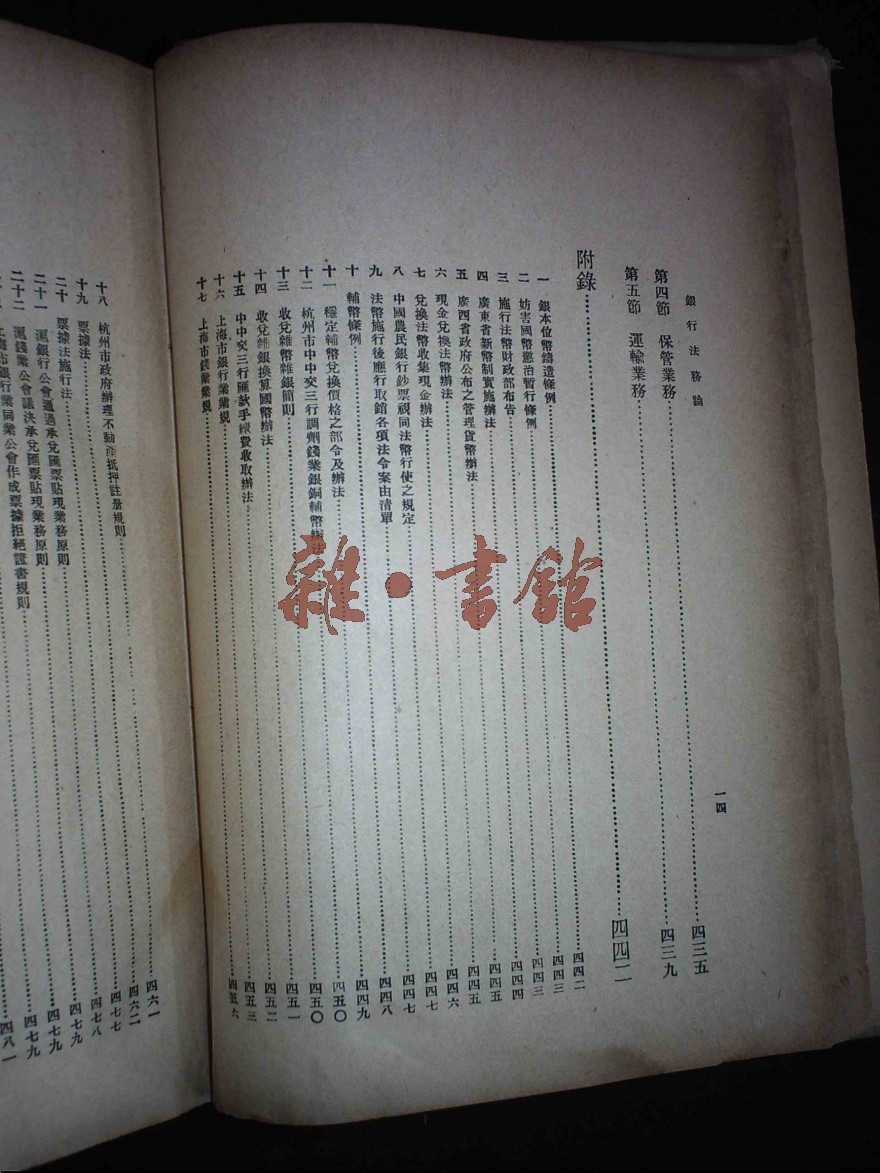 銀行法務論
一四
第四節 保管業務……四三五
第五節 運輸業務……四三九
附錄……四四二
一 銀本位幣鑄造條例……四四二
二 妨害國幣懲治暫行條例……四四三
三 施行法幣財政部布告……四四三
四 廣東省新幣制實施辦法……四四四
五 廣西省政府公布之管理貨幣辦法……四四五
六 現金兌換法幣辦法……四四五
七 兌換法幣收集現金辦法……四四六
八 中國農民銀行鈔票視同法幣行使之規定……四四七
九 法幣施行後應行取締各項法令案由清單……四四七
十 輔幣條例……四四八
十一 穩定輔幣兌換價格之部令及辦法……四四九
十二 杭州市中中交三行調劑錢業銀銅輔幣辦法……四五〇
十三 收兌雜幣雜銀簡則……四五〇
十四 收兌雜銀換算國幣辦法……四五一
十五 中中交三行匯款手續費收取辦法……四五二
十六 上海市銀行業業規……四五三
十七 上海市錢業業規……四五六
十八 杭州市政府辦理不動產抵押註册規則……四六一
十九 票據法……四六二
二十 票據法施行法……四七七
二十一 滬銀行公會通過承兌匯票貼現業務原則……四七八
二十二 滬錢業公會議決承兌匯票貼現業務原則……四七九
上海市銀行業同業公會作成票據拒絕證書規則……四七九
四七九
四八一
雜·書館